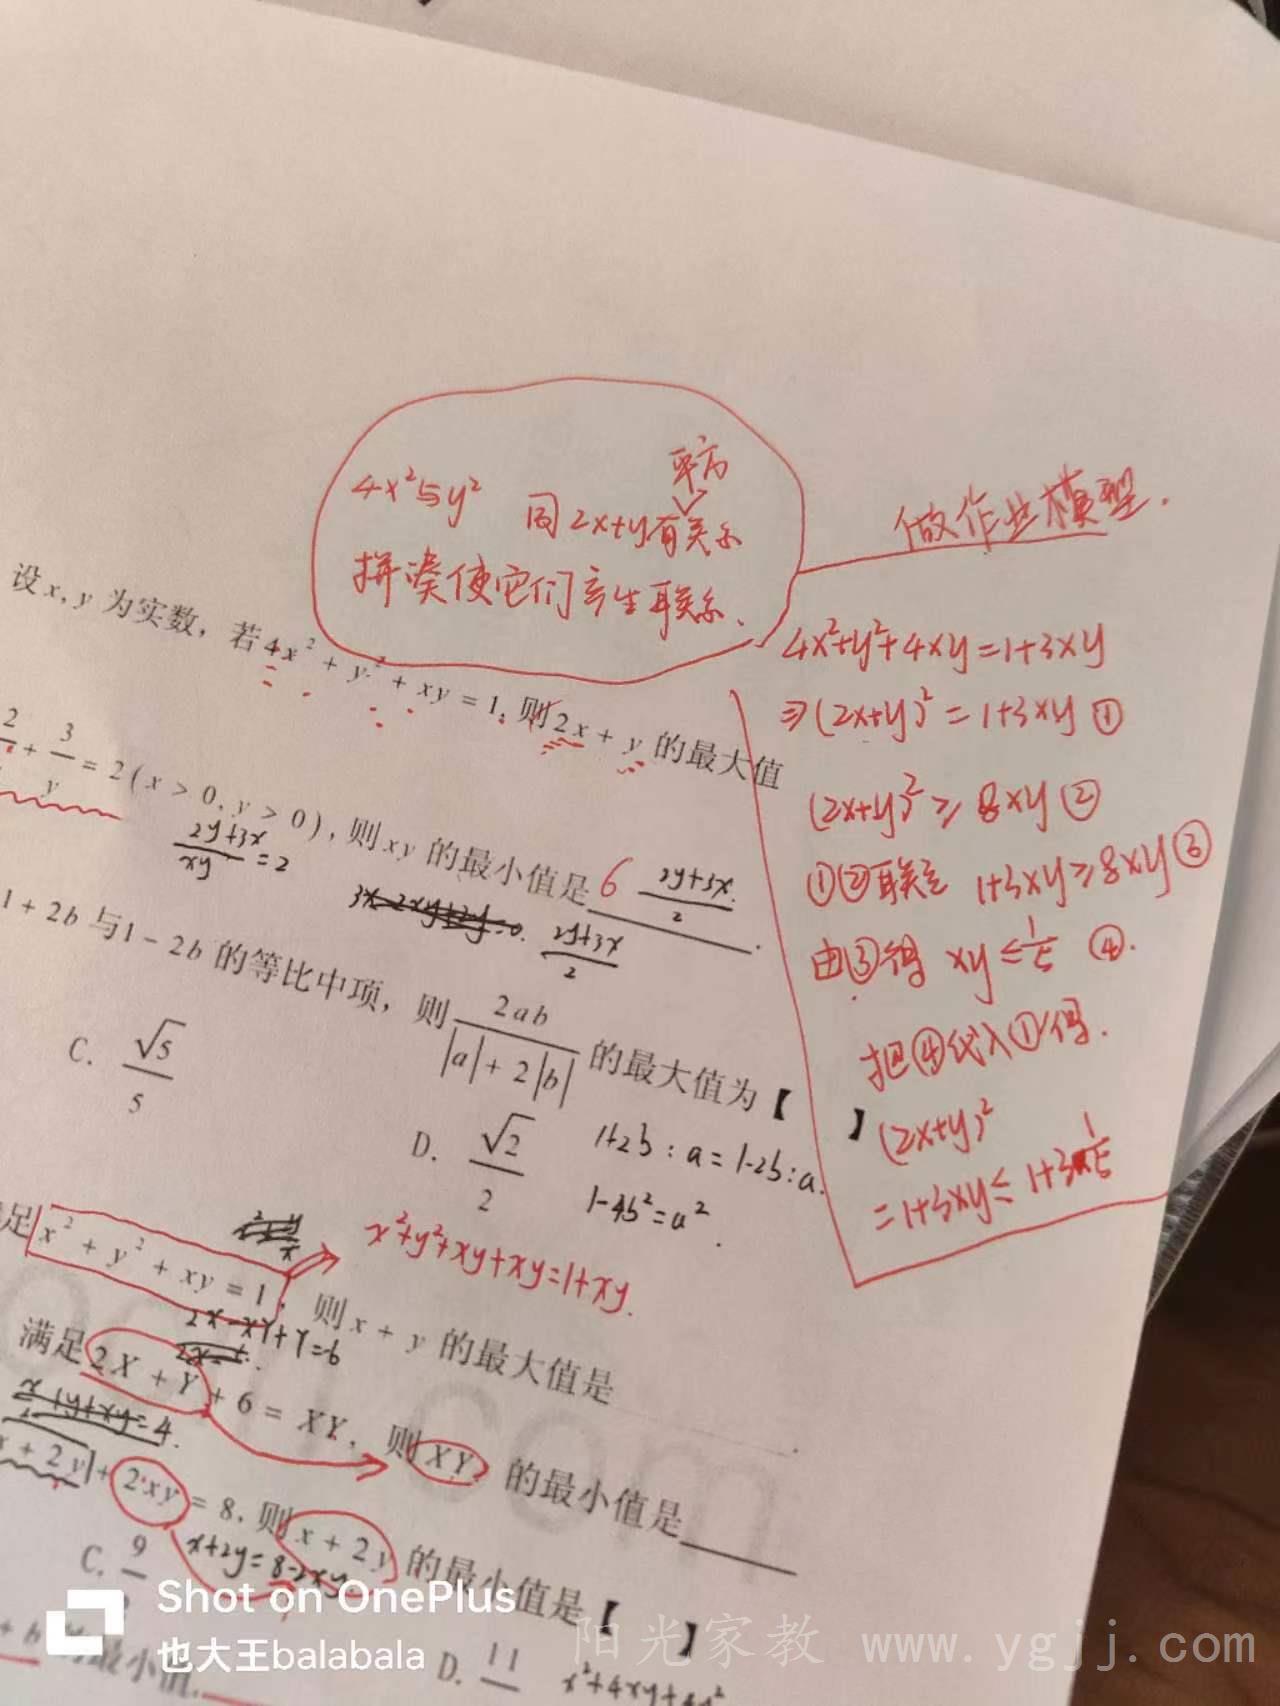 平方
4x²与y² 同2x+y有关系
拼凑使它们产生联系.
做作业模型.
设x, y 为实数, 若4x² + y² + xy = 1, 则2x + y 的最大值
4x²+y²+4xy=1+3xy
⇒(2x+y)²=1+3xy ①
(2x+y)²≥8xy ②
①②联立 1+3xy≥8xy ③
由③得 xy≤1/5 ④.
把④代入①得.
(2x+y)²
=1+3xy≤1+3×1/5
2/x + 3/y = 2 ( x > 0, y > 0 ), 则xy 的最小值是 6 .
(2y+3x)/xy = 2
(2y+3x)/2
3x-2xy+2y=0. (2y+3x)/2
1 + 2b 与1 - 2b 的等比中项, 则 2ab/(|a| + 2|b|) 的最大值为【 】
C. √5/5
D. √2/2
1+2b : a = 1-2b : a.
1-4b²=a².
足 x² + y² + xy = 1, 则x + y 的最大值是 .
x²+y²+xy+xy=1+xy.
2X-XY+Y=6
满足2X + Y + 6 = XY, 则XY 的最小值是
x + 2y + 2xy = 8, 则x + 2y 的最小值是【 】
x+2y=8-2xy
C. 9
D. 11
x²+4xy+4y²
+ b 的最小值.
Shot on OnePlus
也大王balabala
阳光家教 www.ygjj.com